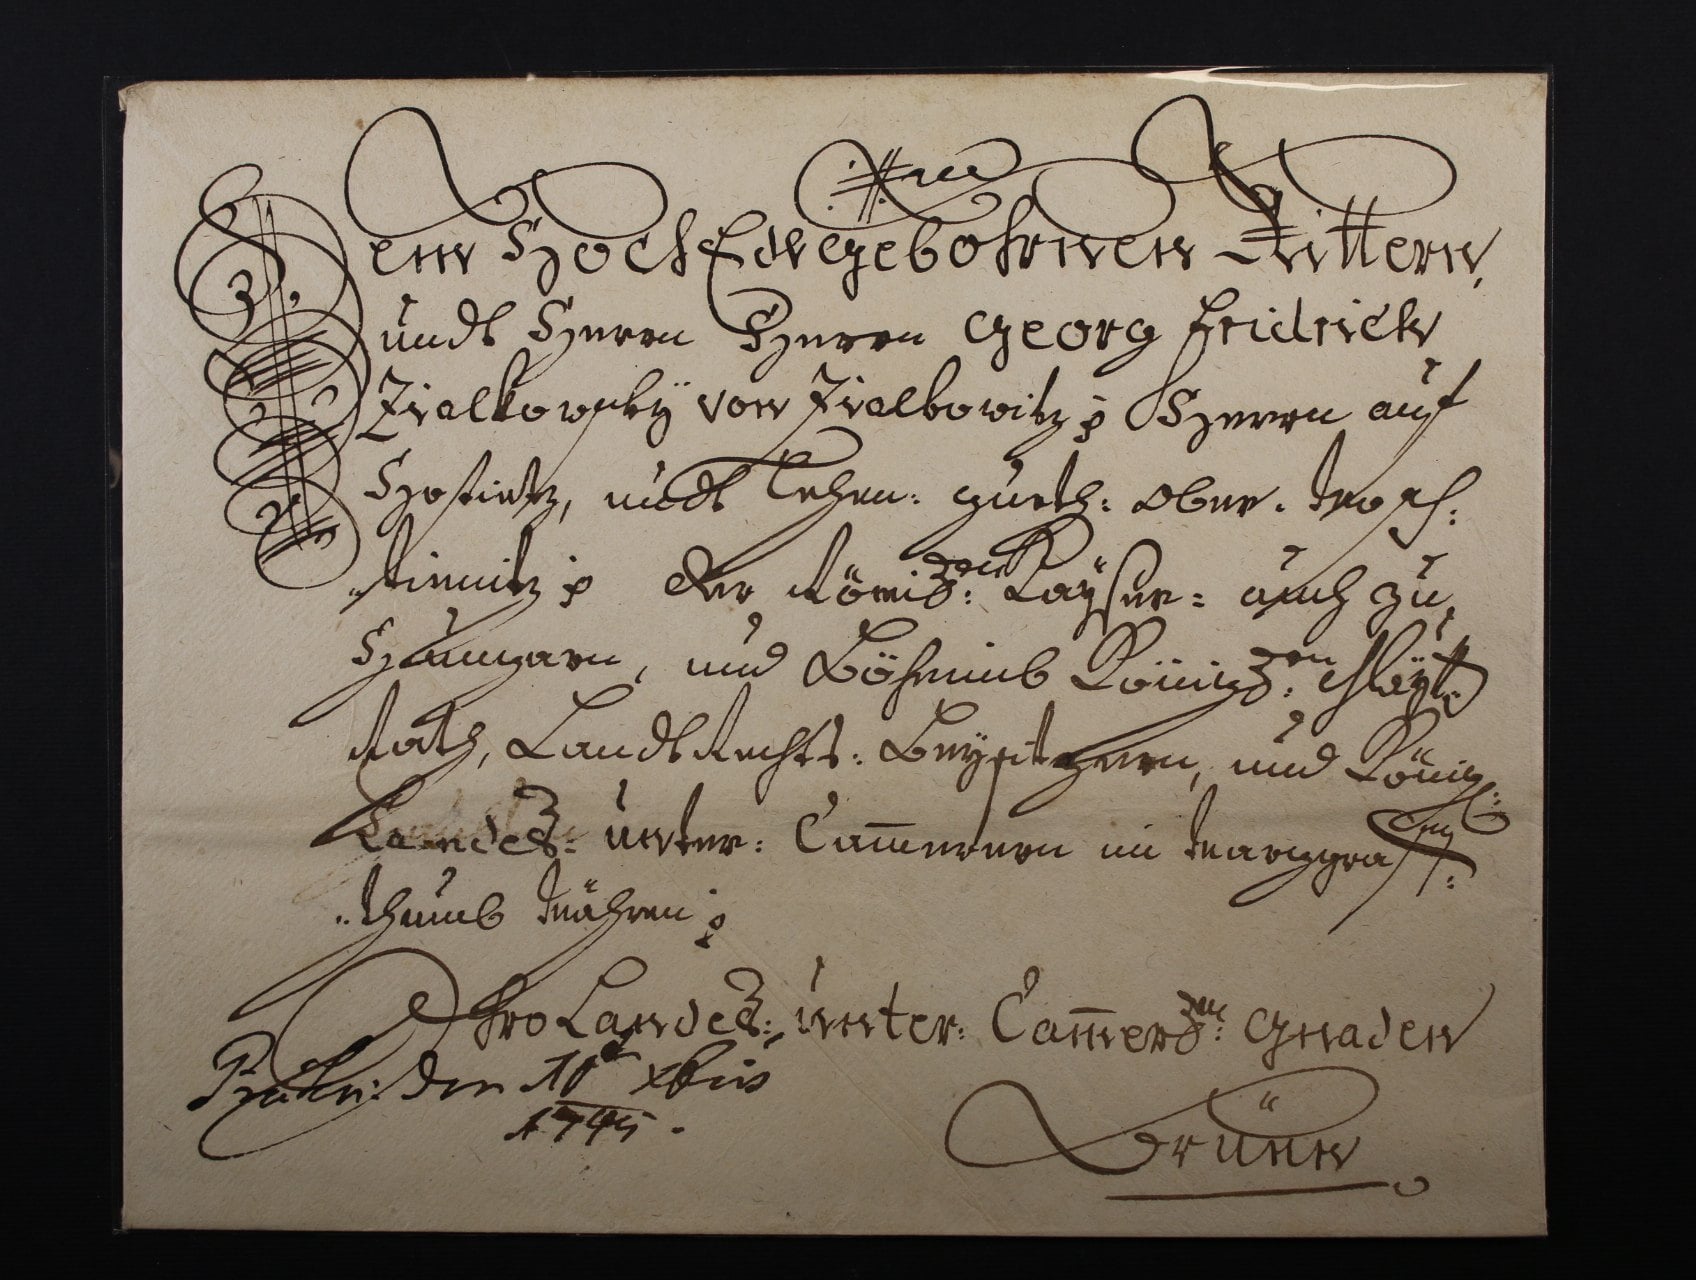 Dem HochEdlgebohrnen Rittern,
undt Herrn Herrn Georg Fridrich
Zialkowskÿ von Zialkowitz Herrn auf
undt Lehen: gueth: Ober.
der Römis: Kaÿser: auch zu
Hungarn, und Böheimb Königl:
Rath, LandtRechts: Beysitzern, und König:
Landes: Unter: Cam̅erern im Marggraff:
thumb Mähren
Ihro Landes: Unter: Cam̅er: Gnaden
den 10 xbris
1745.
Brünn